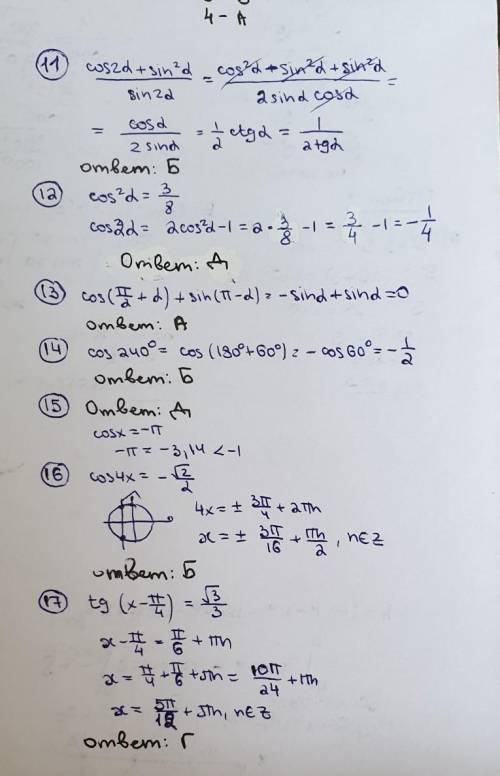 4 - А
11 (cos2α + sin²α)/(sin2α) = (cos²α - sin²α + sin²α)/(2sinα cosα) =
= cosα/(2sinα) = 1/2 ctgα = 1/(2tgα)
ответ: Б
12 cos²α = 3/8
cos2α = 2cos²α - 1 = 2 · 3/8 - 1 = 3/4 - 1 = - 1/4
Ответ: Д
13 cos(π/2 + α) + sin(π - α) = - sinα + sinα = 0
ответ: А
14 cos 240° = cos (180° + 60°) = - cos 60° = - 1/2
ответ: Б
15 Ответ: Д
cosx = -π
-π = -3,14 < -1
16 cos4x = - √2/2
4x = ± 3π/4 + 2πn
x = ± 3π/16 + πn/2, n∈Z
ответ: Б
17 tg (x - π/4) = √3/3
x - π/4 = π/6 + πn
x = π/4 + π/6 + πn = 10π/24 + πn
x = 5π/12 + πn, n∈Z
ответ: Г